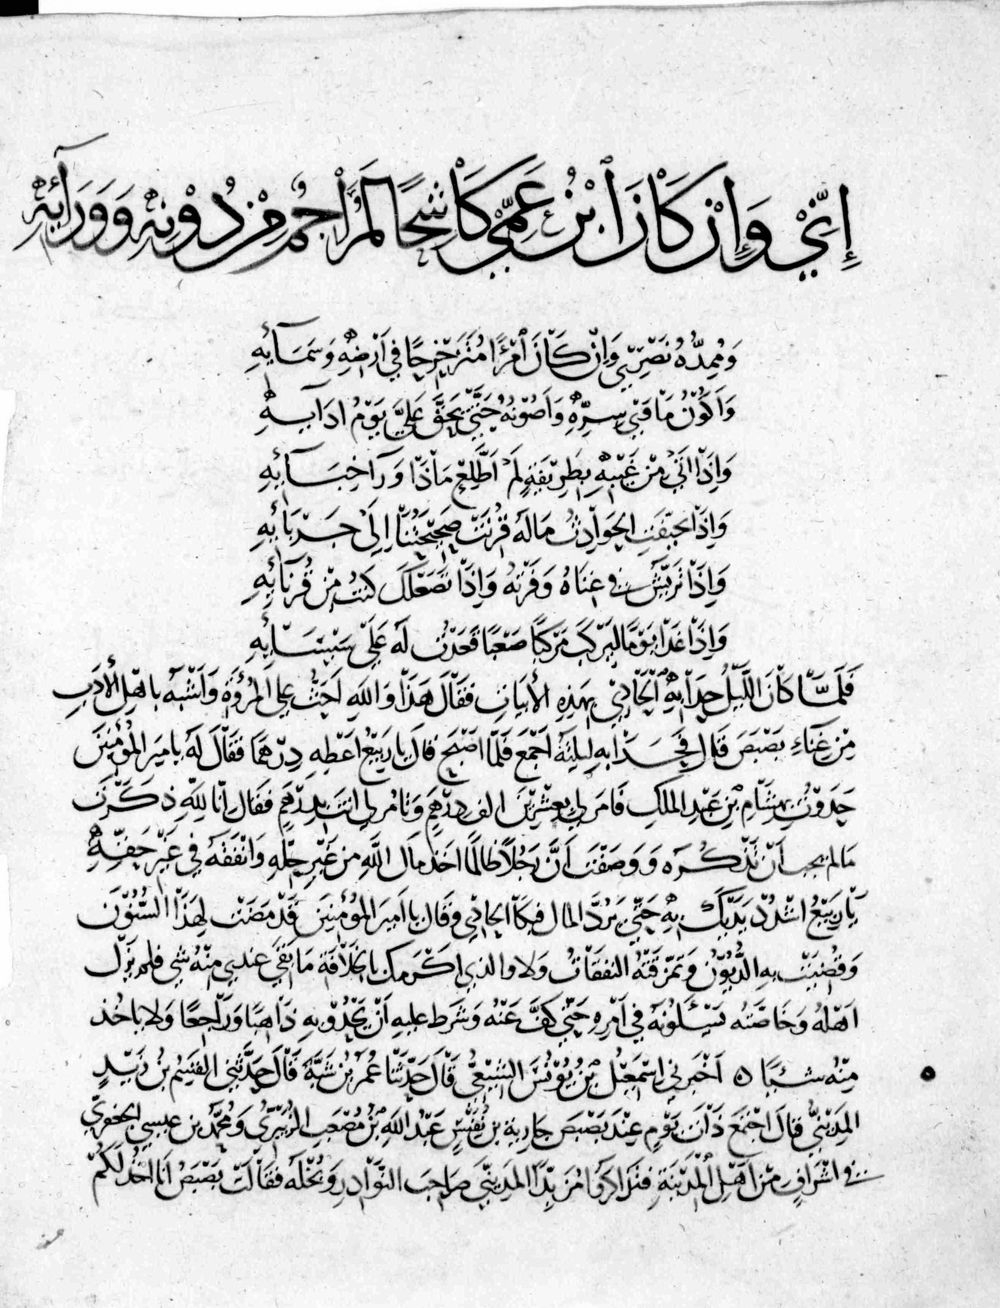 إِنِّي وَإِنْ كَانَ ٱبْنُ عَمِّي كَاشِحًا لَمُرَاجِمٌ مِنْ دُوْنِهِ وَوَرَائِهِ
وَمُمِدُّهُ نَصْرِي وَإِنْ كَانَ ٱمْرَءًا مُتَزَحْزِحًا فِي أَرْضِهِ وَسَمَائِهِ
وَأَكُوْنُ مَا فِي سِرِّهِ وَأَصُوْنُهُ حَتَّى يَحِقَّ عَلَيَّ يَوْمُ ادَآئِهِ
وَإِذَا اتَى مِنْ غَيْبِهِ بِطَرِيْفَةٍ لَمْ اَطَّلِعْ مَاذَا وَرَآ خِبَآئِهِ
وَإِذَا تَحَيَّفَتِ الحَوَادِثُ مَالَهُ قُرِنَتْ صَحِيْحَتُنَا إِلَى جَرْبَائِهِ
وَإِذَا تَرَيَّشَ فِي غِنَاهُ وَفَرْتُهُ وَإِذَا تَصَعْلَكَ كُنْتُ مِنْ قُرَنَائِهِ
وَإِذَا غَدَا يَوْمًا لِيَرْكَبَ مَرْكَبًا صَعْبًا قَعَدْتُ لَهُ عَلَى سِيْسَائِهِ
فَلَمَّا كَانَ اللَّيْلُ حَدَا بِهِ الحَادِي بِهَذِهِ الأَبْيَاتِ فَقَالَ هَذَا وَاللهِ اَحَثُّ عَلَى المُرُوْءَةِ وَاَشْبَهُ بِاهْلِ الأَدَبِ
مِنْ غِنَاءِ بَصْبَصَ قَالَ فَحَدَا بِهِ لَيْلَتَهُ اَجْمَعَ فَلَمَّا اَصْبَحَ قَالَ يَا رَبِيْعُ اَعْطِهِ دِرْهَمًا فَقَالَ لَهُ يَا مِيرَ المُؤْمِنِيْنَ
حَدَوْتُ بِهِشَامِ بْنِ عَبْدِ المَلِكِ فَامَرَ لِي بِعِشْرِيْنَ الف دِرْهَمٍ وَتَامُرُ لِي انتَ بِدِرْهَمٍ فَقَالَ اِنَّا لِلَّهِ ذَكَرْتَ
مَا لم يجب اَنْ تَذْكُرَه وَوَصَفْتَ اَنَّ رَجُلًا ظَالِمًا اَخَذَ مَالَ اللَّهِ مِنْ غَيْرِ حِلِّهِ وَاَنْفَقَهُ فِي غَيْرِ حَقِّهِ
يَا رَبِيْعُ اشْدُدْ يَدَيْكَ بِهِ حَتَّى يَرُدَّ المال فبكا الحادي وَقَالَ يَا اَمِيرَ المُؤْمِنِينَ قَدْ مَضَتْ لِهَذَا السِّنُوْنَ
وَقُضِيَتْ بِهِ الدُّيُوْنُ وَتَمَزَّقَتْهُ النَفَقَاتُ وَلَا وَالذي اكْرَمَكَ بِالخِلَافَة مَا بَقِيَ عندي مِنْهُ شي فلم يَزَلْ
اَهْلُهُ وَخَاصَّتُه يَسْئَلُونَهُ فِي اَمْرِهِ حَتَّى كَفَّ عَنْهُ وَشَرَطَ عليهِ اَنْ يَحْدُوَ بِهِ ذَاهِبًا وَرَاجِعًا وَلا يَاخُذ
مِنْهُ شَيْئًا ه اَخْبَرَنِي اسْمَعِيْلُ بْنُ يُوْنُسَ الشِّيْعِيُّ قَالَ حَدَّثَنَا عُمَرُ بْنُ شَبَّةَ قَالَ حَدَّثَنِي القَسِيْمُ بن زَيْدٍ
المَدِيْنِيُّ قَالَ اجْتَمَعَ ذَاتَ يَوْمٍ عِنْدَ بَصْبَصَ جَارِيَة بن نُفَيْسٍ عَبْدُ اللهِ بْنُ مُصْعَبٍ الزُبَيْرِيُّ وَمُحَمَّد بن عيسى الجعفريّ
فِي اَشْرَافٍ مِنْ اَهْلِ المَدِيْنَةِ فَتَذَاكَرُوْا مُزَبِّدًا المَدِيْنِيَّ صَاحِبَ النَّوَادِرِ وَبُخْلَهُ فَقَالَتْ بَصْبَصُ اَنَا اَخُذُ لَكُمْ